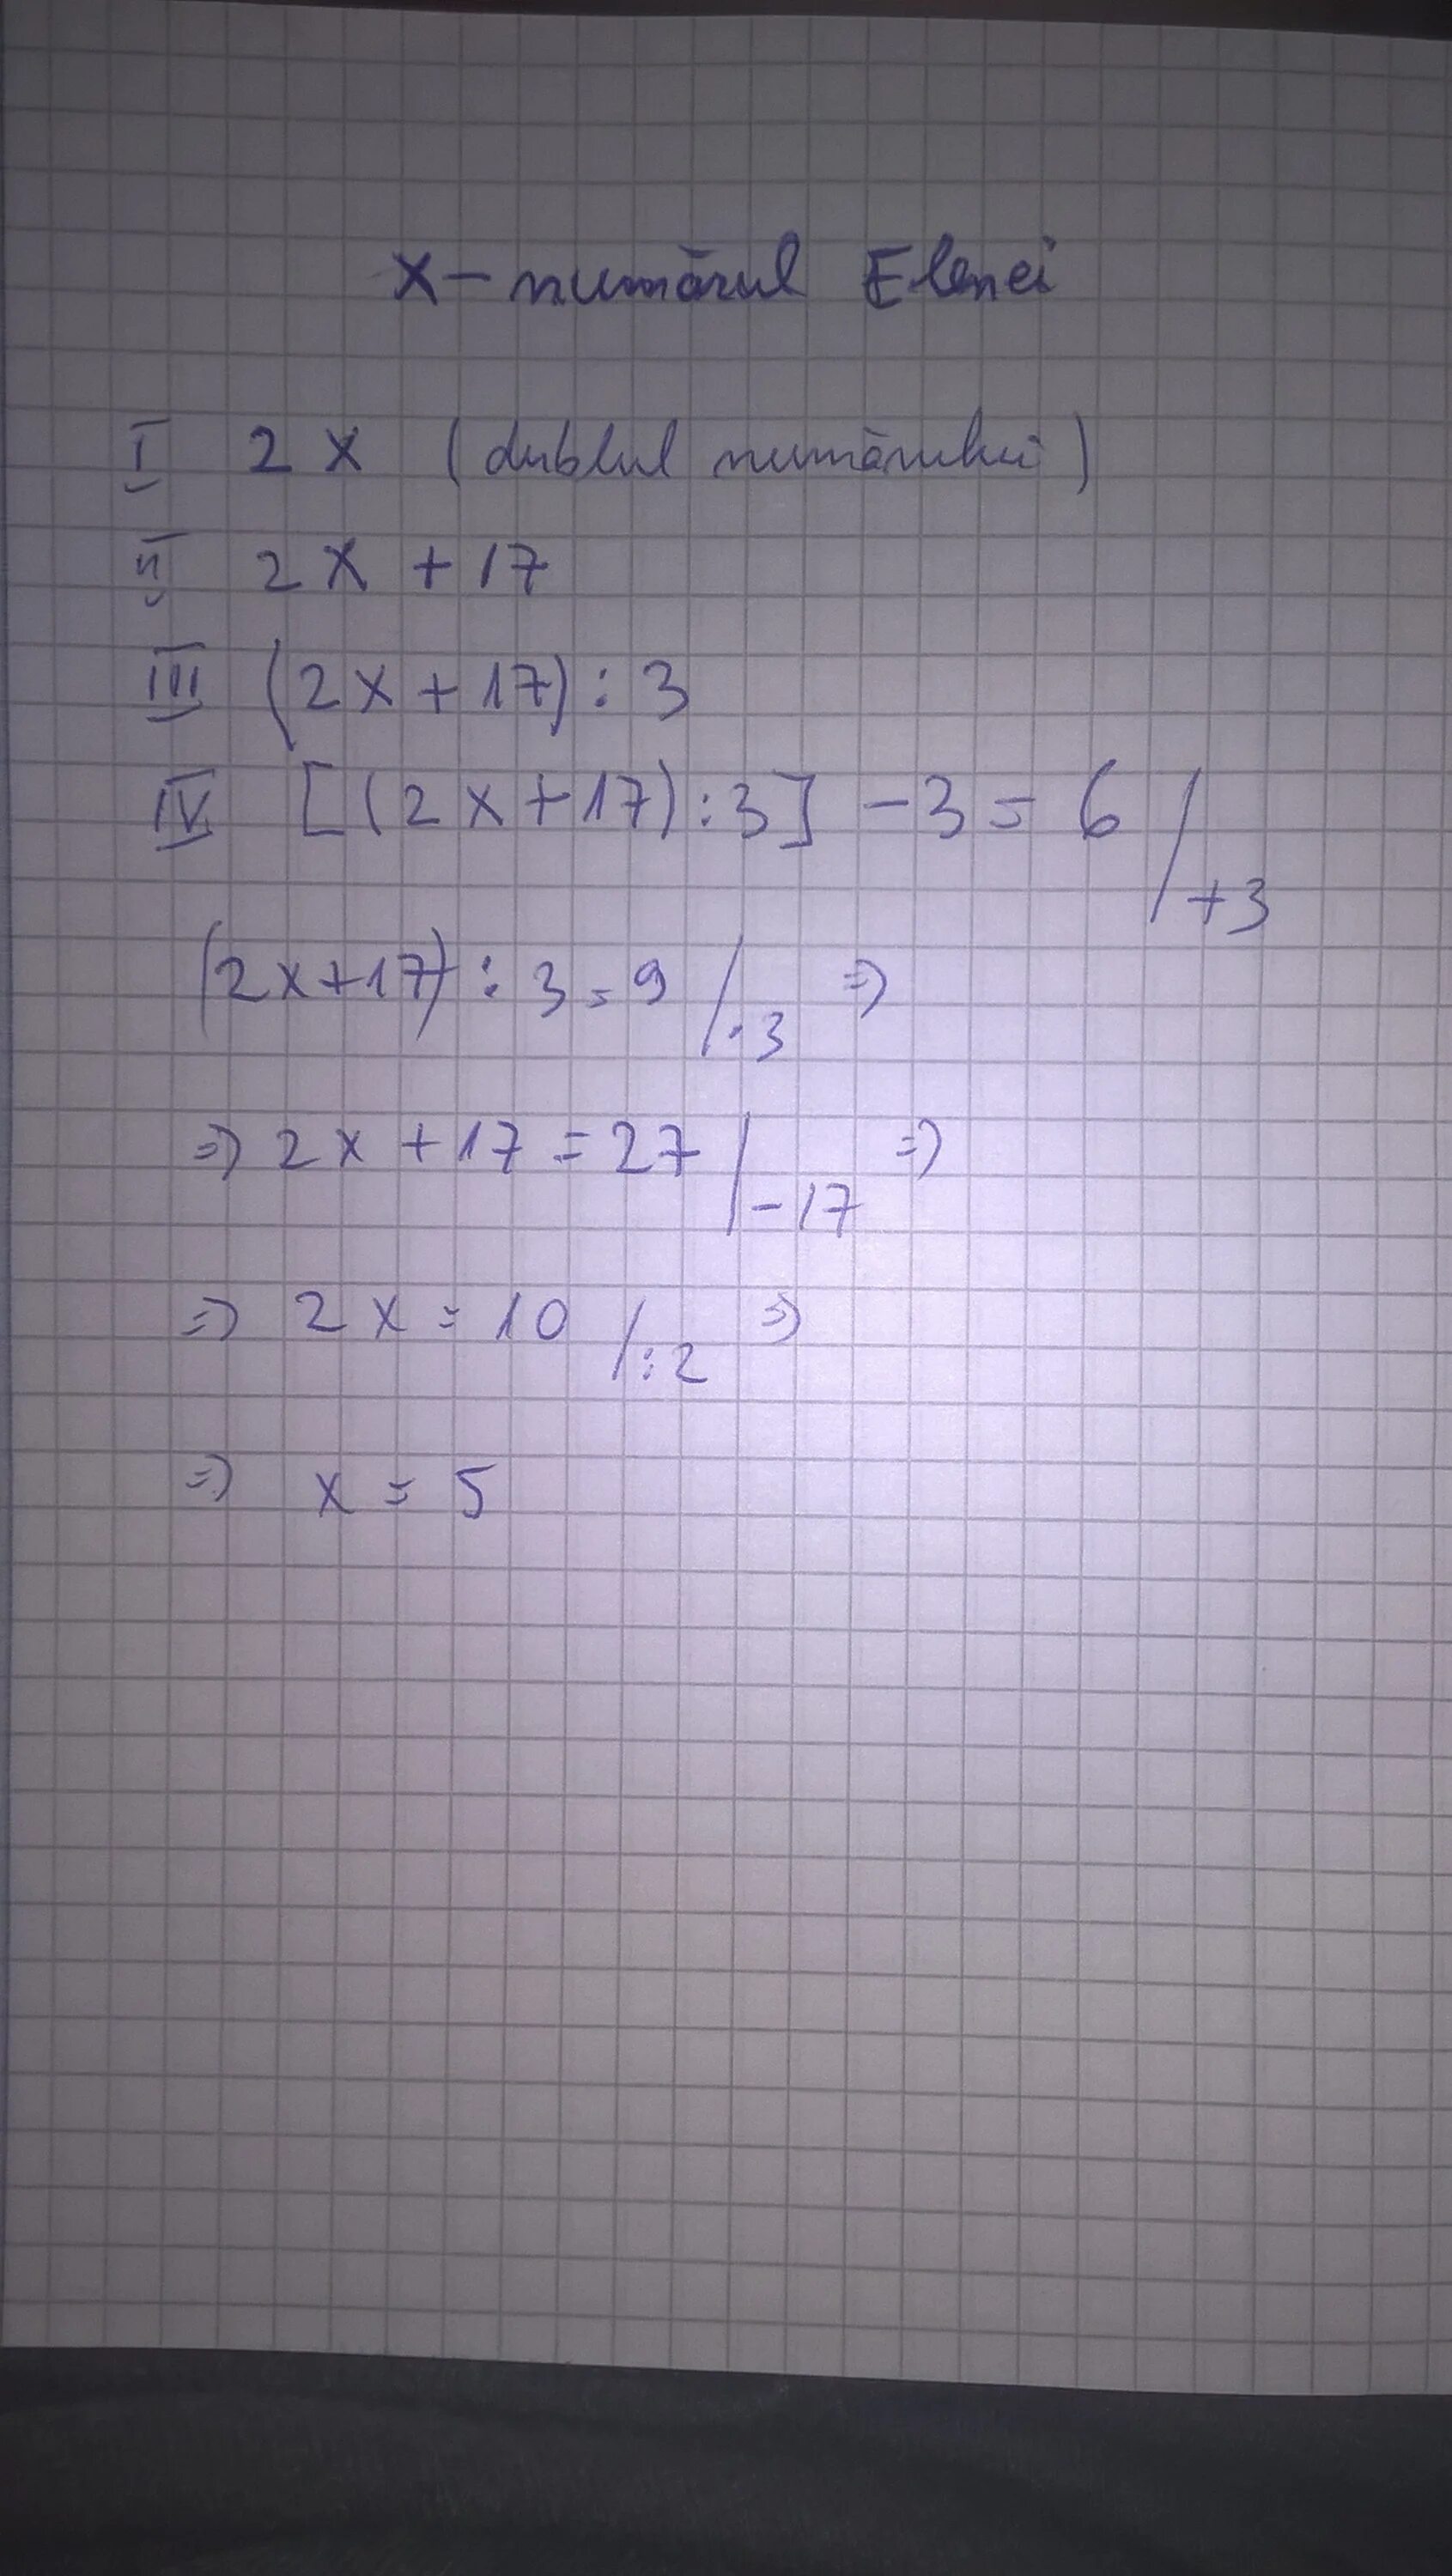 x - numărul Elenei
I 2x (dublul numărului)
II 2x + 17
III (2x + 17) : 3
IV [(2x + 17) : 3] - 3 = 6 / +3
(2x + 17) : 3 = 9 / ·3 =>
=> 2x + 17 = 27 / -17 =>
=> 2x = 10 / :2 =>
=> x = 5